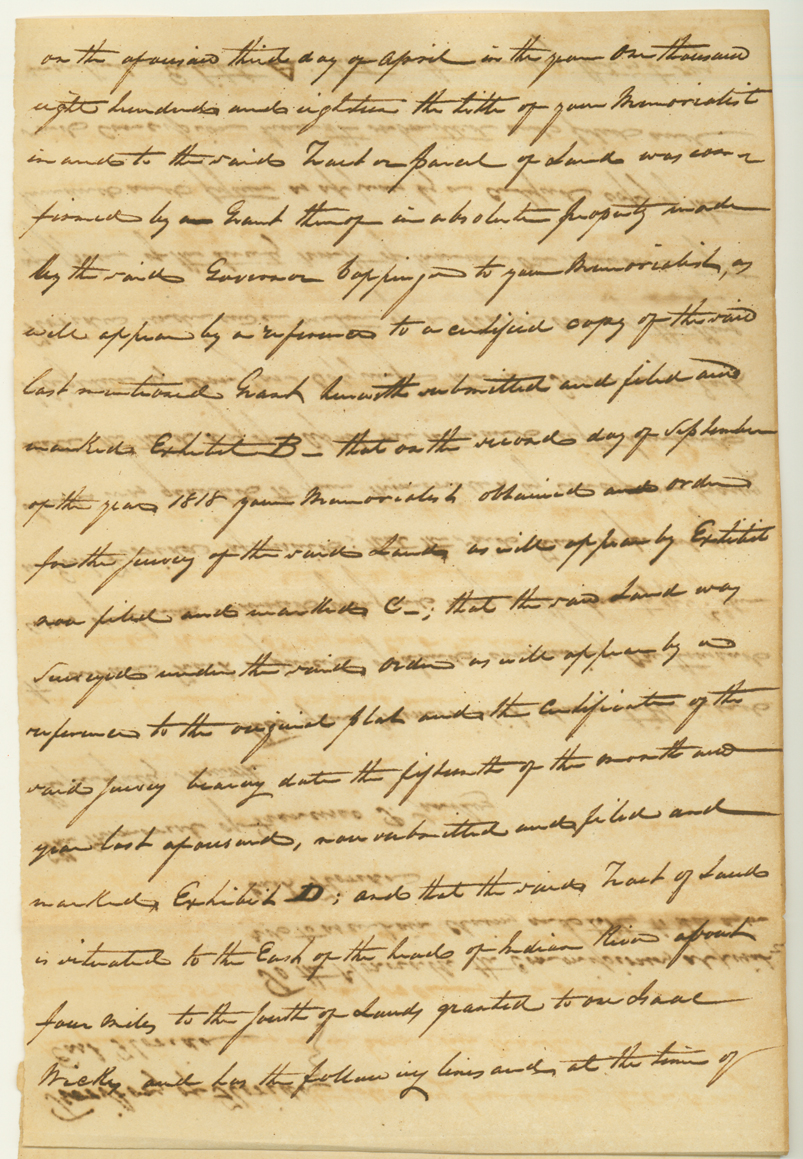 on the aforesaid third day of April in the year One thousand
eight hundred and eighteen the title of your Memorialist
in and to the said Tract or parcel of Land was con-
firmed by a Grant thereof in absolute property made
by the said Governor Coppinger to your Memorialist, as
will appear by a reference to a certified copy of the said
last mentioned Grant herewith submitted and filed and
marked Exhibit B - that on the second day of September
of the year 1818 your Memorialist obtained and order
for the survey of the said Lands as will appear by Exhibit
now filed and marked C -; that the said Land was
Surveyed under the said order as will appear by a
reference to the original plat and the Certificate of the
said survey bearing date the fifteenth of the month and
year last aforesaid, now submitted and filed and
marked Exhibit D; and that the said Tract of Land
is situated to the East of the head of Indian River about
four miles to the South of Lands granted to one Isaac
Wickes and has the following lines and, at the time of